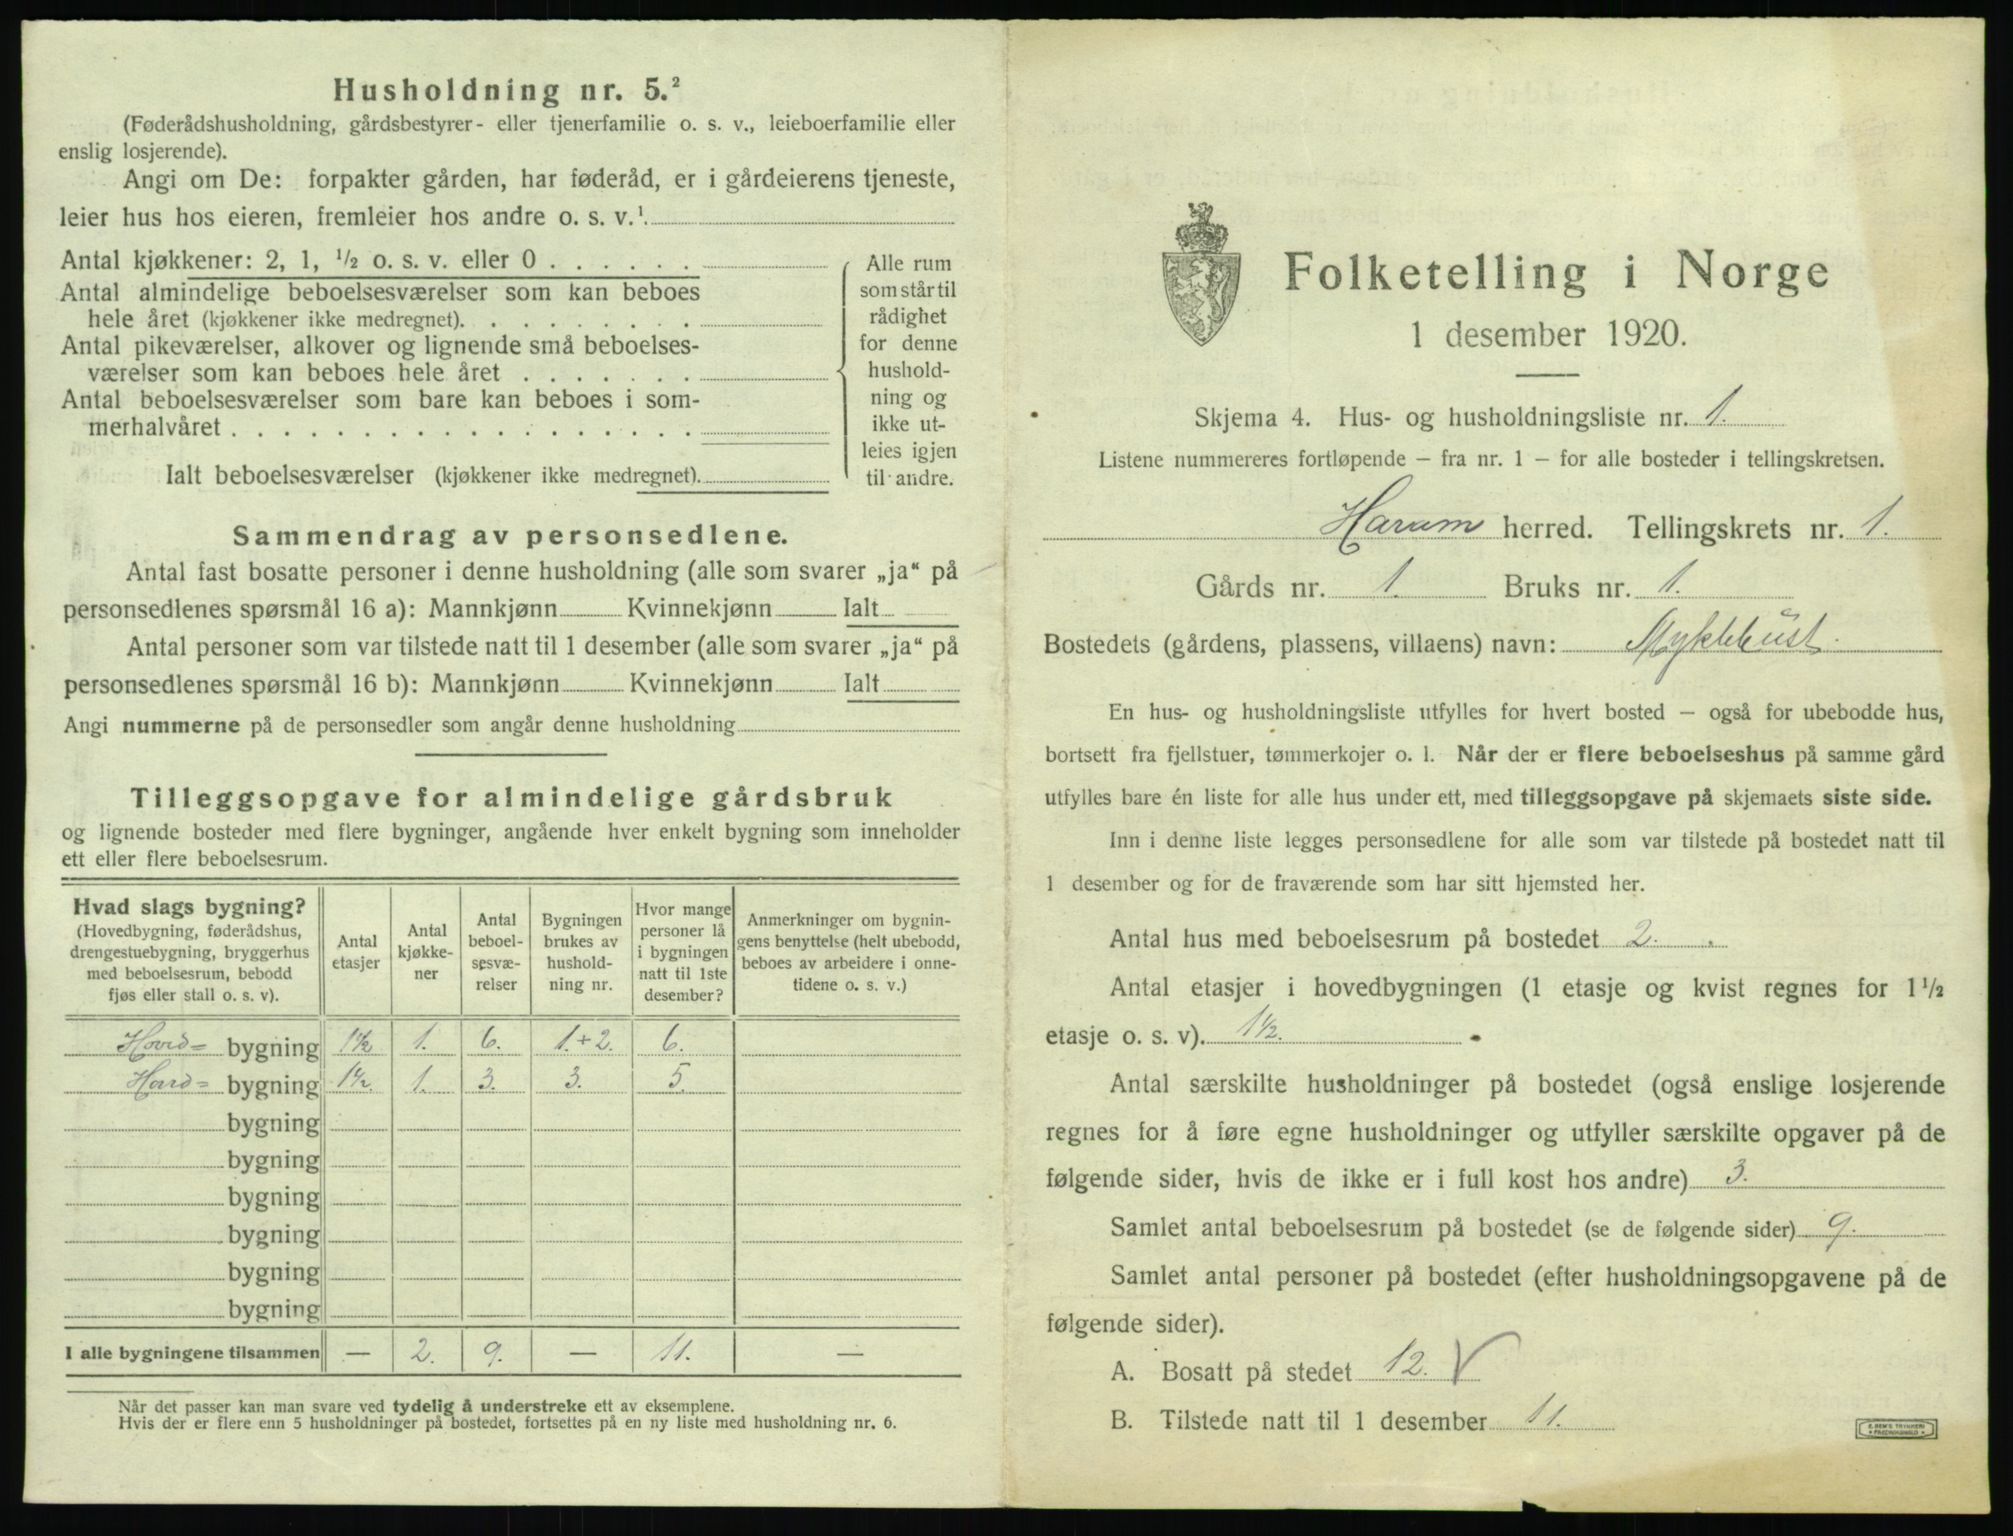 Husholdning nr. 5.²
(Føderådshusholdning, gårdsbestyrer- eller tjenerfamilie o. s. v., leieboerfamilie eller
enslig losjerende).
Angi om De: forpakter gården, har føderåd, er i gårdeierens tjeneste,
leier hus hos eieren, fremleier hos andre o. s. v.¹.
Antal kjøkkener: 2, 1, ½ o. s. v. eller 0 . . . . . .
Antal almindelige beboelsesværelser som kan beboes
hele året (kjøkkener ikke medregnet). . . . . . . . .
Antal pikeværelser, alkover og lignende små beboelses-
værelser som kan beboes hele året . . . . . . .
Antal beboelsesværelser som bare kan beboes i som-
merhalvåret . . . . . . . . . . . . . . . . . .
Ialt beboelsesværelser (kjøkkener ikke medregnet).
Alle rum
som står til
rådighet
for denne
hushold-
ning og
ikke ut-
leies igjen
til andre.
Sammendrag av personsedlene.
Antal fast bosatte personer i denne husholdning (alle som svarer „ja“ på
personsedlenes spørsmål 16 a): Mannkjønn Kvinnekjønn Ialt
Antal personer som var tilstede natt til 1 desember (alle som svarer „ja“ på
personsedlenes spørsmål 16 b): Mannkjønn Kvinnekjønn Ialt
Angi nummerne på de personsedler som angår denne husholdning
Tilleggsopgave for almindelige gårdsbruk
og lignende bosteder med flere bygninger, angående hver enkelt bygning som inneholder
ett eller flere beboelsesrum.
Hvad slags bygning?
(Hovedbygning, føderådshus,
drengestuebygning, bryggerhus
med beboelsesrum, bebodd
fjøs eller stall o. s. v).
Antal
etasjer
Antal
kjøkke-
ner
Antal
beboel-
sesvæ-
relser
Bygningen
brukes av
hushold-
ning nr.
Hvor mange
personer lå
i bygningen
natt til 1ste
desember?
Anmerkninger om bygnin-
gens benyttelse (helt ubebodd,
beboes av arbeidere i onne-
tidene o. s. v.)
Hovid= bygning 1½ 1. 6. 1.+2. 6.
Hovd= bygning 1½. 1. 3. 3. 5.
bygning
bygning
bygning
bygning
bygning
bygning
I alle bygningene tilsammen — 2. 9. — 11. —
Når det passer kan man svare ved tydelig å understreke ett av eksemplene.
Hvis der er flere enn 5 husholdninger på bostedet, fortsettes på en ny liste med husholdning nr. 6.
Folketelling i Norge
1 desember 1920.
Skjema 4. Hus- og husholdningsliste nr. 1.
Listene nummereres fortløpende – fra nr. 1 – for alle bosteder i tellingskretsen.
Haram herred. Tellingskrets nr. 1.
Gårds nr. 1. Bruks nr. 1.
Bostedets (gårdens, plassens, villaens) navn: Myklebust.
En hus- og husholdningsliste utfylles for hvert bosted – også for ubebodde hus,
bortsett fra fjellstuer, tømmerkojer o. l. Når der er flere beboelseshus på samme gård
utfylles bare én liste for alle hus under ett, med tilleggsopgave på skjemaets siste side.
Inn i denne liste legges personsedlene for alle som var tilstede på bostedet natt til
1 desember og for de fraværende som har sitt hjemsted her.
Antal hus med beboelsesrum på bostedet 2.
Antal etasjer i hovedbygningen (1 etasje og kvist regnes for 1½
etasje o. s. v). 1½.
Antal særskilte husholdninger på bostedet (også enslige losjerende
regnes for å føre egne husholdninger og utfyller særskilte opgaver på de
følgende sider, hvis de ikke er i full kost hos andre) 3.
Samlet antal beboelsesrum på bostedet (se de følgende sider) 9.
Samlet antal personer på bostedet (efter husholdningsopgavene på de
følgende sider).
A. Bosatt på stedet 12. V
B. Tilstede natt til 1 desember 11.